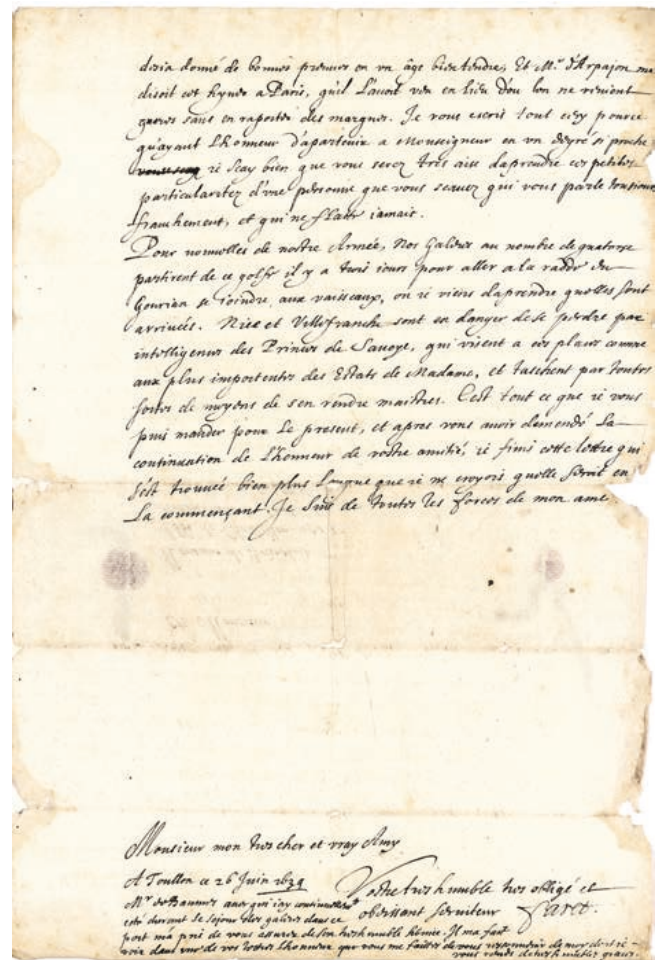 desia donné de bonnes preuves en vn âge bien tendre, Et Mr. d'Arpajon me
disoit cet hyuer a Paris, qu'il l'auoit veu en lieu d'ou lon ne reuient
gueres sans en raporter des marques. Je vous escris tout cecy pource
qu'ayant l'honneur d'apartenir a Monseigneur en vn degré si proche
ie scay bien que vous serez tres aise daprendre ces petites
particularitez d'vne personne que vous scauez qui vous parle tousiours
franchement, et qui ne flatte iamais.
Pour nouuelles de nostre Armée, Nos Galeres au nombre de quatorze
partirent de ce golfe il y a trois iours pour aller a la radde du
Gourian se ioindre aux vaisseaux, ou ie viens daprendre quelles sont
arriuées. Nice et Villefranche sont en danger de se perdre par
intelligence des Princes de Sauoye, qui visent a ces places comme
aux plus importentes des Estats de Madame, et taschent par toutes
sortes de moyens de sen rendre maistres. C'est tout ce que ie vous
puis mander pour le present, et apres vous auoir demendé la
continuation de l'honneur de vostre amitié, ie finis cette lettre qui
s'est trouuée bien plus longue que ie ne croyois quelle seroit en
la commençant. Je suis de toutes les forces de mon ame
Monsieur mon tres cher et vray Amy
A Toullon ce 26 Juin 1639
Vostre tres humble tres obligé et
obeissant seruiteur
Faret.
Mr de Baumes auec qui iay continuellemt
esté durant le seiour des galeres dans ce
port m'a prié de vous asseurer de son tres humble seruice. Il ma fait
voir dans vne de vos lettres l'honneur que vous me faittes de vous ressouuenir de moy dont ie
vous rends de tres humbles graces.